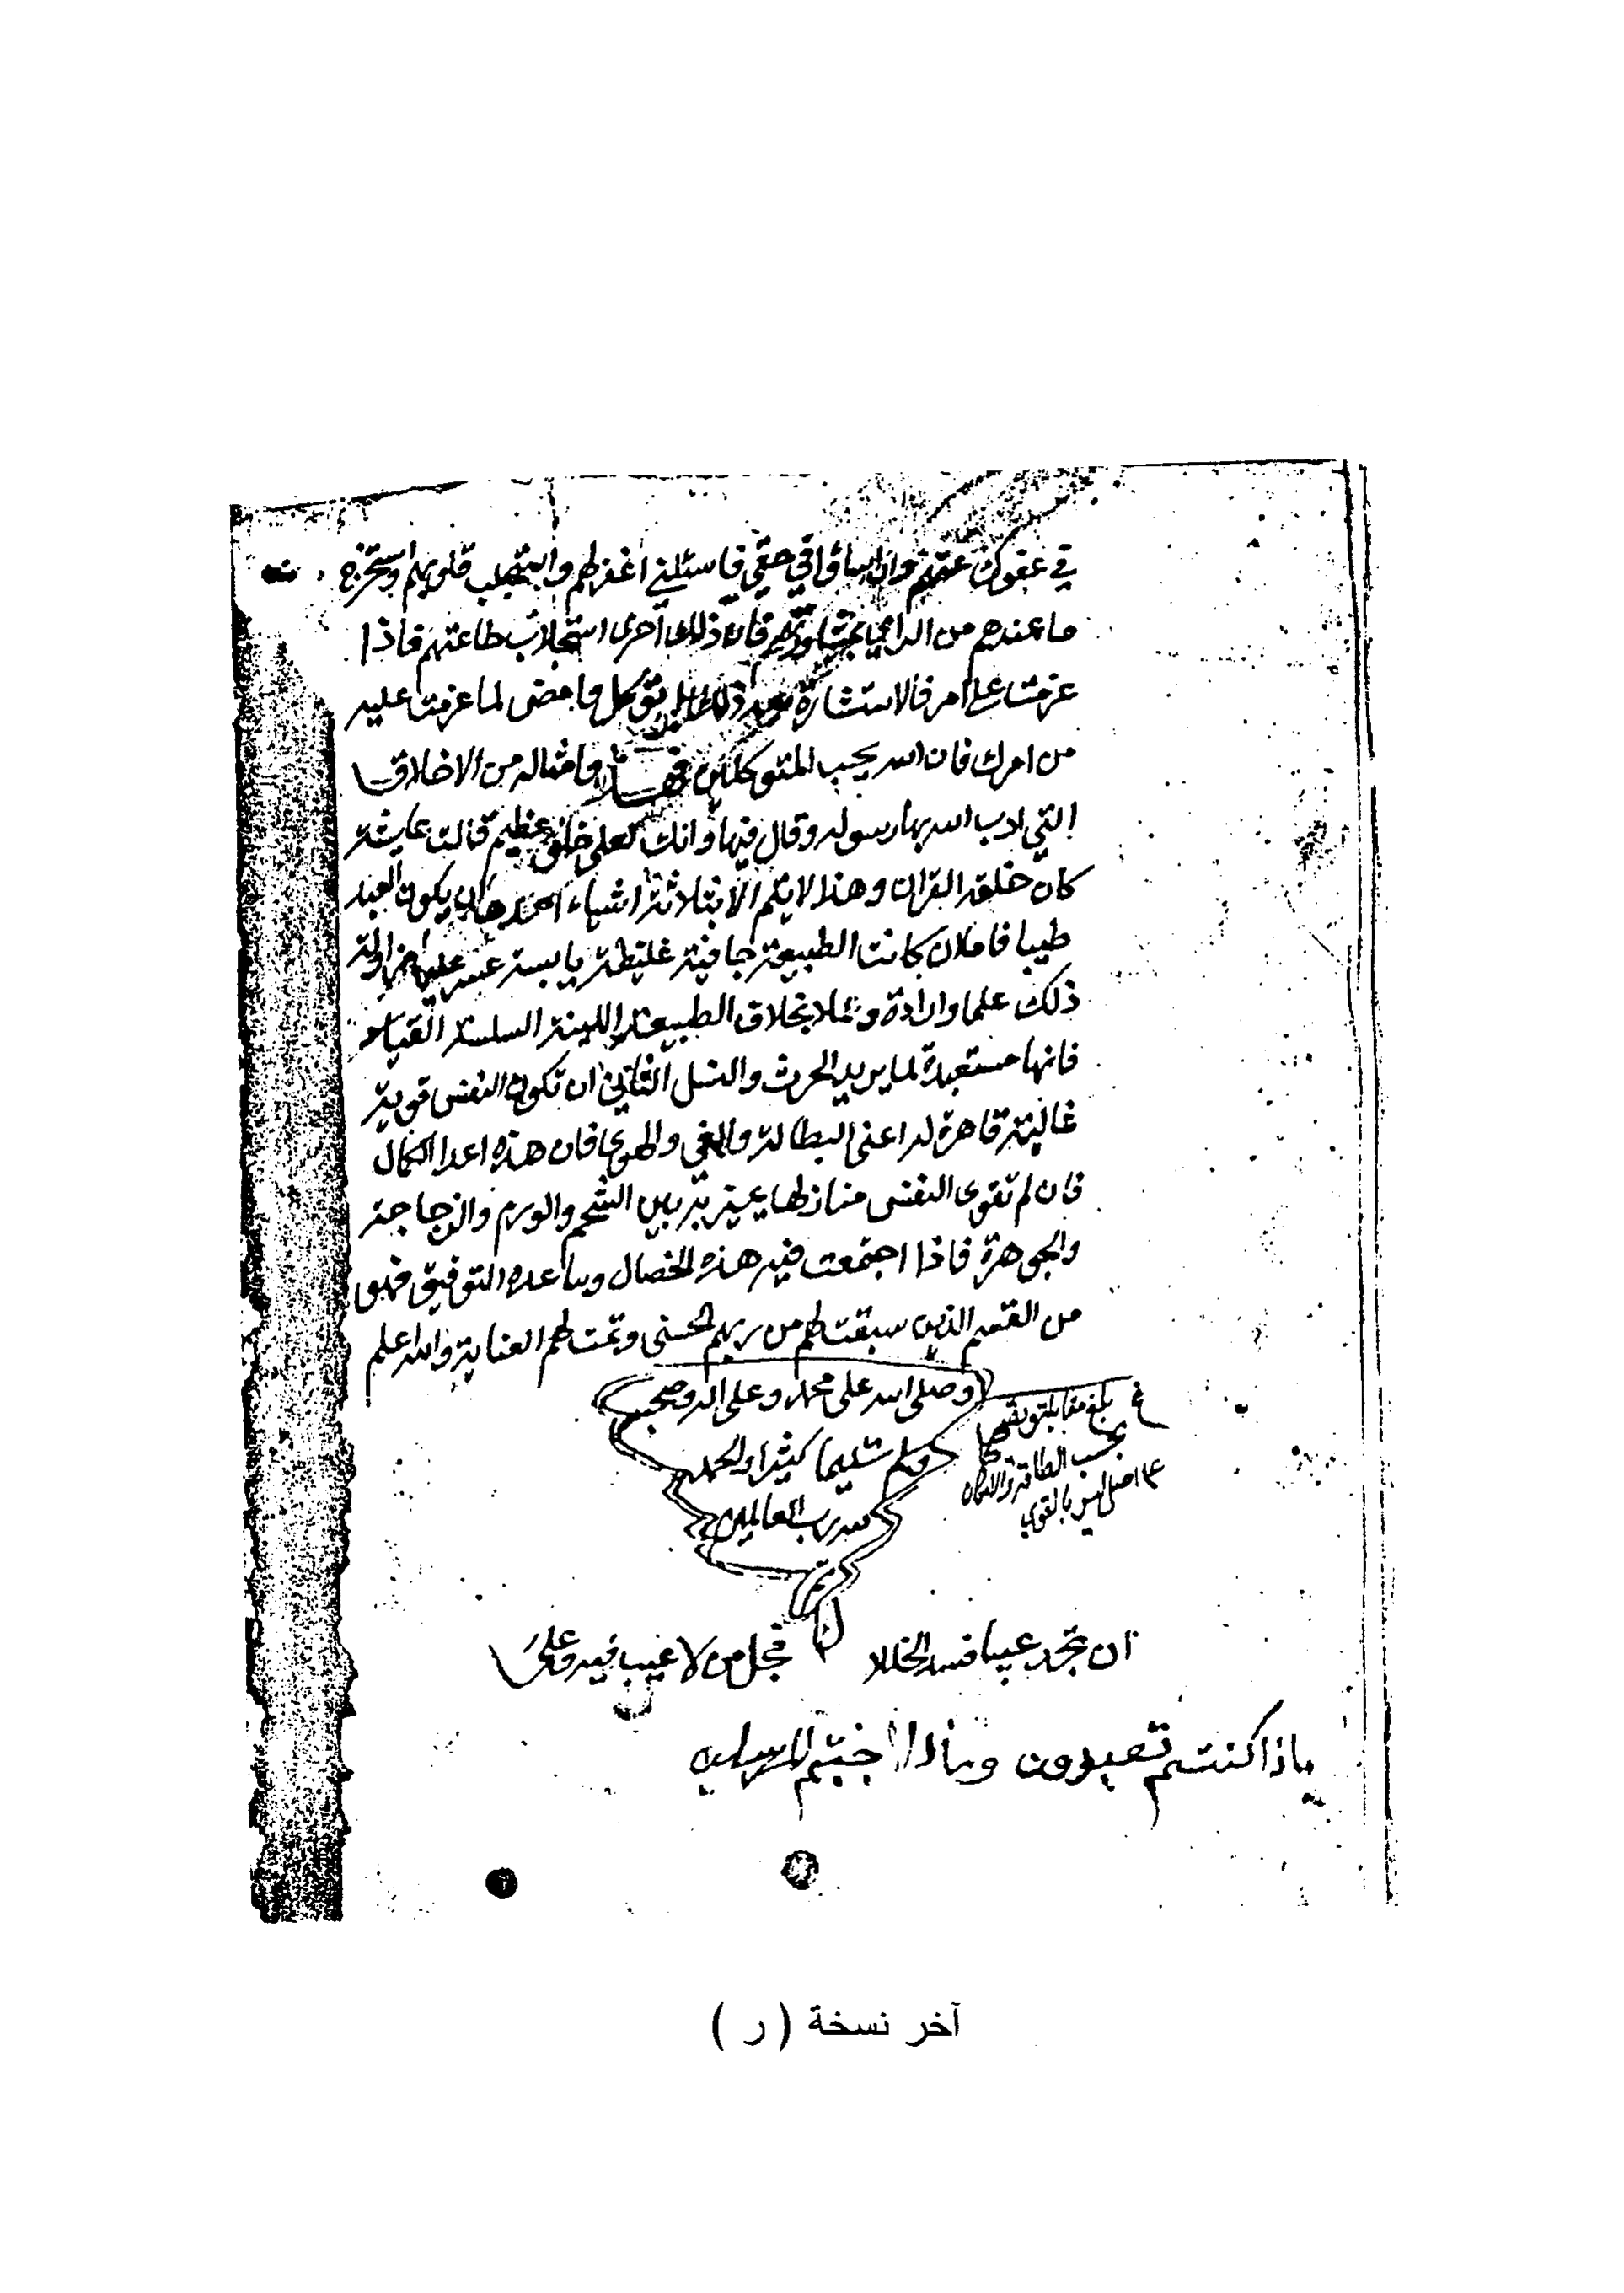 في عفوك عنهم وان اساؤا في حقي فاسئلني اغفر لهم واستجلب قلوبهم واستخرج
ما عندهم من الراي بمشاورتهم فان ذلك احرى استجلاب طاعتهم فاذا
عزمت على امر فالاستشارة بعد ذلك بل توكل وامض لما عزمت عليه
من امرك فان الله يحب المتوكلين فهذا وامثاله من الاخلاق
التي ادب الله بها رسوله وقال فيها وانك لعلى خلق عظيم قالت عايشة
كان خلقه القران وهذا لا يتم الا بثلاثة اشياء احدها ان يكون العبد
طيبا فاما ان كانت الطبيعة جافية غليظة يابسة عسر عليها مزاولة
ذلك علما وارادة وعملا بخلاف الطبيعة اللينة السلسلة القياد
فانها مستعدة لما يريد الحرث والنسل الثاني ان تكون النفس قوية
غالبة قاهرة لدراعني البطالة والغي والهوى فان هذه اعدا الكمال
فان لم تقوى النفس منازلها يميز به بين الشحم والورم والزجاجة
والجوهرة فاذا اجتمعت فيه هذه الخصال وساعده التوفيق فهو
من القسم الذين سبقت لهم من ربهم الحسنى وتمت لهم العناية والله اعلم
وصلى الله على محمد وعلى اله وصحبه
وسلم تسليما كثيرا والحمد
لله رب العالمين
تم
بلغ مقابلة وتصحيحا
بحسب الطاقة والامكان
على اصل ليس بالقوي
ان تجد عيبا فسد الخللا فجل من لا عيب فيه وعلى
ماذا كنتم تعبدون وماذا اجبتم المرسلين
آخر نسخة ( ر )